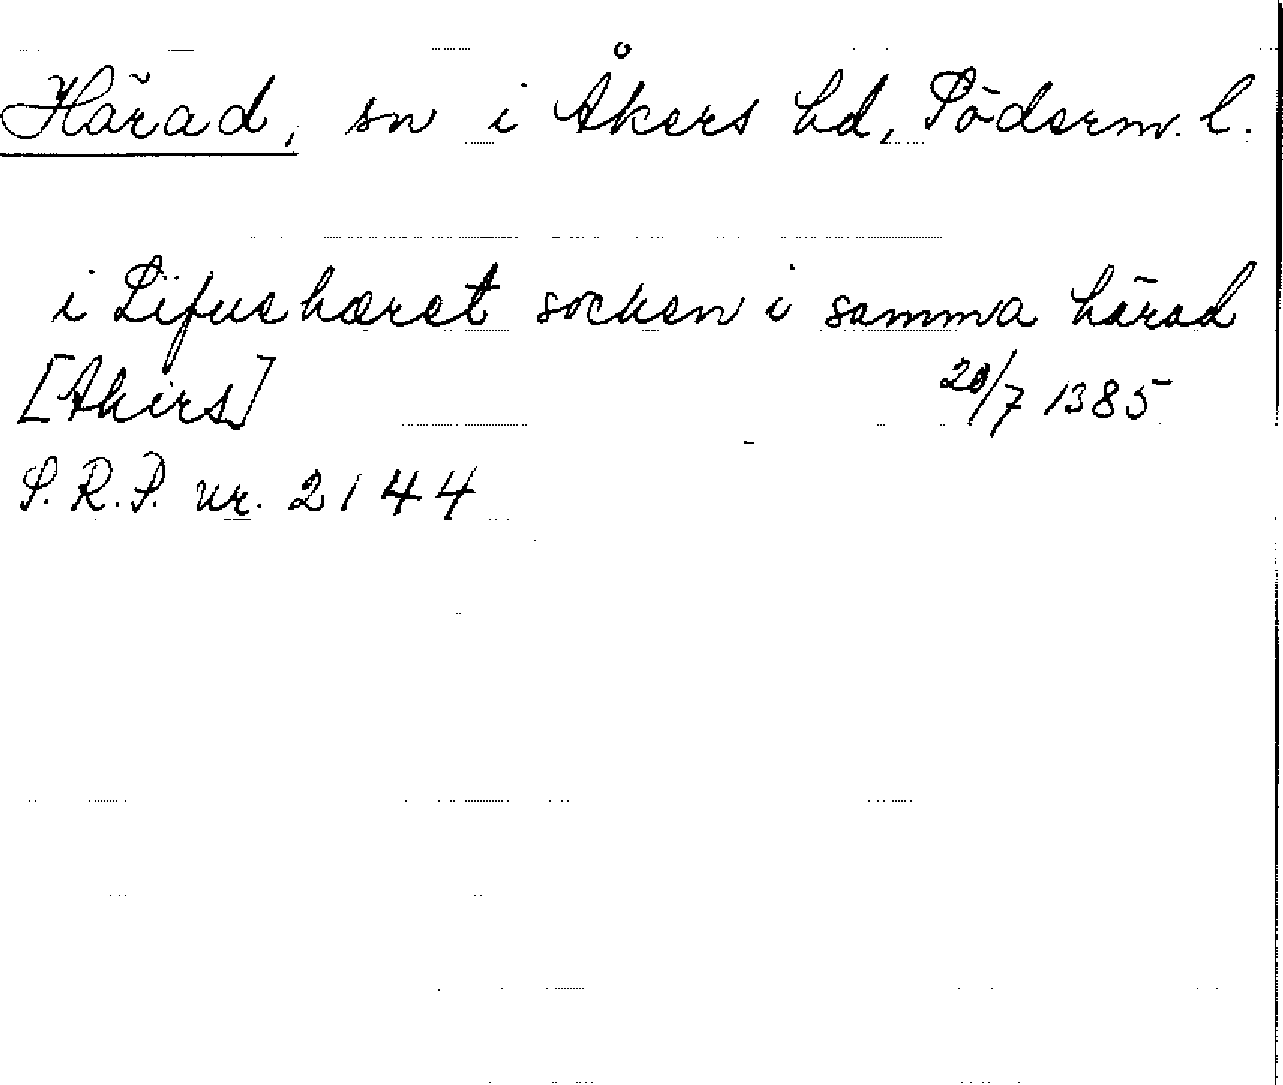 Härad, sn i Åkers hd, Söderm. l.
i Lifuehæret socken i samma härad
[Akirs] 20/7 1385
S.R.P. nr. 2144